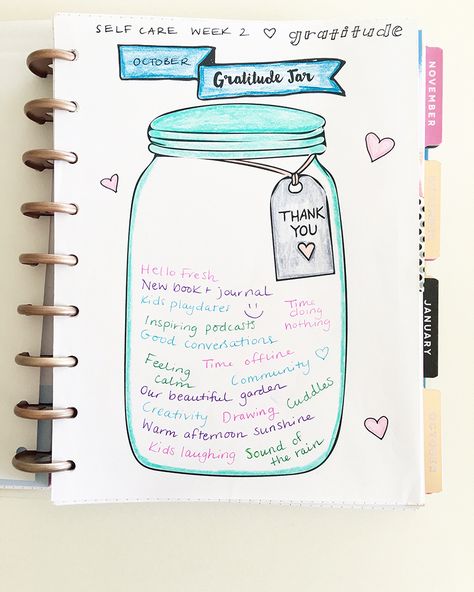 SELF CARE WEEK 2 ♡ gratitude
OCTOBER
Gratitude Jar
NOVEMBER
THANK
YOU
Hello Fresh
New book + journal
Kids playdates
Time
doing
nothing
Inspiring podcasts
Good conversations
JANUARY
Feeling
calm
Time offline
Community ♡
Our beautiful garden
Cuddles
Creativity
Drawing
Warm afternoon sunshine
Kids laughing
Sound of
the rain